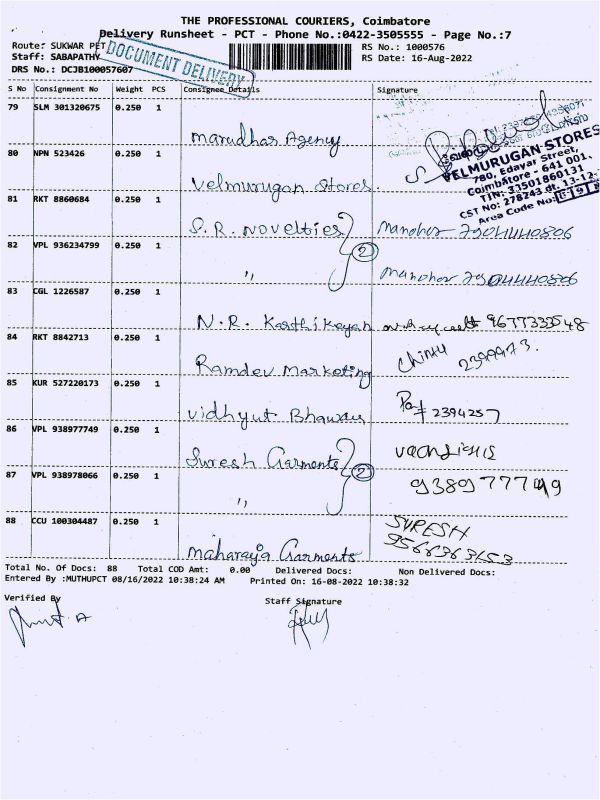 THE PROFESSIONAL COURIERS, Coimbatore
Delivery Runsheet - PCT - Phone No.:0422-3505555 - Page No.:7
Route: SUKWAR PET
RS No.: 1000576
Staff: SABAPATHY
RS Date: 16-Aug-2022
DRS No.: DCJB100057607
DOCUMENT DELIVERY
S No Consignment No Weight PCS Consignee Details Signature
79 SLM 301320675 0.250 1
Marudhar Agency
80 NPN 523426 0.250 1
Velmurugan Stores
VELMURUGAN STORES
780, Edayar Street,
Coimbatore - 641 001.
TIN: 33501860131
CST No: 278243 dt. 13-12-
Area Code No:
81 RKT 8860684 0.250 1
S.R. Novelties
Manohar
82 VPL 936234799 0.250 1
" (2)
Manohar
83 CGL 1226587 0.250 1
N.R. Karthikeyan 9677333548
84 RKT 8842713 0.250 1
Ramdev Marketing
Chintu 2399973.
85 KUR 527220173 0.250 1
Vidhyut Bhawan
2394257
86 VPL 938977749 0.250 1
Suresh Garments
87 VPL 938978066 0.250 1
" (2)
9389777749
88 CCU 100304487 0.250 1
Maharaja Garments
SURESH
Total No. Of Docs: 88 Total COD Amt: 0.00 Delivered Docs: Non Delivered Docs:
Entered By :MUTHUPCT 08/16/2022 10:38:24 AM Printed On: 16-08-2022 10:38:32
Verified By
Staff Signature